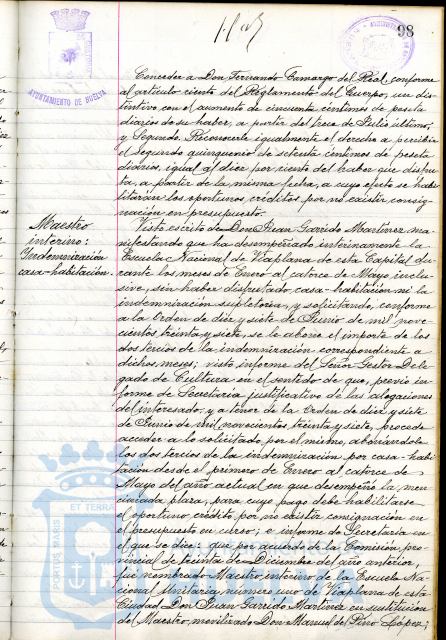 98
AYUNTAMIENTO DE HUELVA
Conceder a Don Fernando Camargo del Real, conforme
al artículo ciento del Reglamento del Cuerpo, un dis-
tintivo con el aumento de cincuenta céntimos de peseta
diarios de su haber, a partir del trece de Julio último;
y Segundo. Reconocerle igualmente el derecho a percibir
el segundo quinquenio de setenta céntimos de peseta
diarios, igual al diez por ciento del haber que disfru-
ta, a partir de la misma fecha, a cuyo efecto se habi-
litaran los oportunos créditos por no existir consig-
nación en presupuesto.
Maestro
interino:
Yndemnización
casa-habitación.
Visto escrito de Don Juan Garrido Martínez ma-
nifestando que ha desempeñado interinamente la
Escuela Nacional de Viaplana de esta Capital du-
rante los meses de Enero al catorce de Mayo, inclu-
sive, sin haber disfrutado casa-habitación ni la
indemnización supletoria, y solicitando, conforme
a la Orden de diez y siete de Junio de mil nove-
cientos treinta y siete se le abone el importe de los
dos tercios de la indemnización correspondiente a
dichos meses; visto informe del Señor Gestor Dele-
gado de Cultura en el sentido de que, previo in-
forme de Secretaría justificativo de las alegaciones
del interesado, y a tenor de la Orden de diez y siete
de Junio de mil novecientos treinta y siete, procede
acceder a lo solicitado por el mismo, abonándole
los dos tercios de la indemnización por casa-habi-
tación desde el primero de Enero al catorce de
Mayo del año actual en que desempeñó la men-
cionada plaza, para cuyo pago debe habilitarse
oportuno crédito por no existir consignación en
el presupuesto en curso; e informe de Secretaría en
el que se dice: que por acuerdo de la Comisión pro-
vincial de treinta de Diciembre del año anterior,
fue nombrado Maestro interino de la Escuela Na-
cional Unitaria número uno de Viaplana de esta
Ciudad Don Juan Garrido Martínez en sustitución
del Maestro movilizado Don Manuel de Pino López;
PORTUS MARIS ET TERRAE